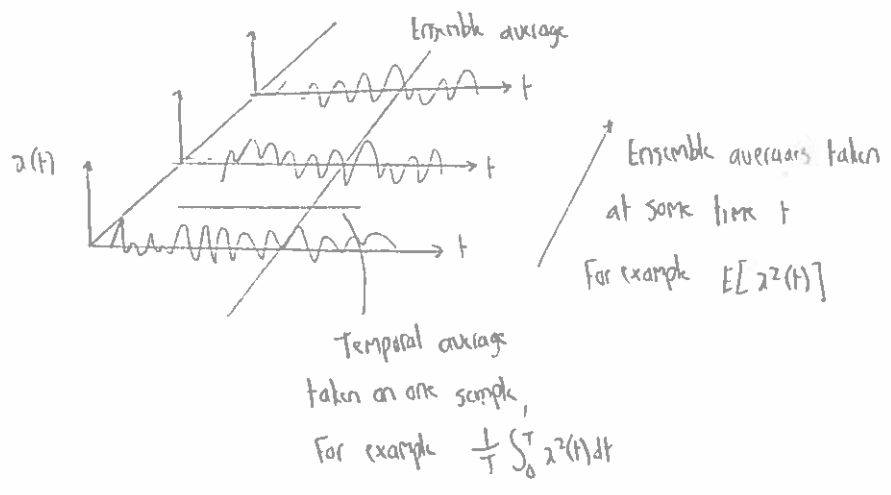 Ensemble average
t
x(t)
t
t
Ensemble averages taken
at some time t
For example E[x²(t)]
Temporal average
taken on one sample,
For example 1/T ∫₀ᵀ x²(t)dt